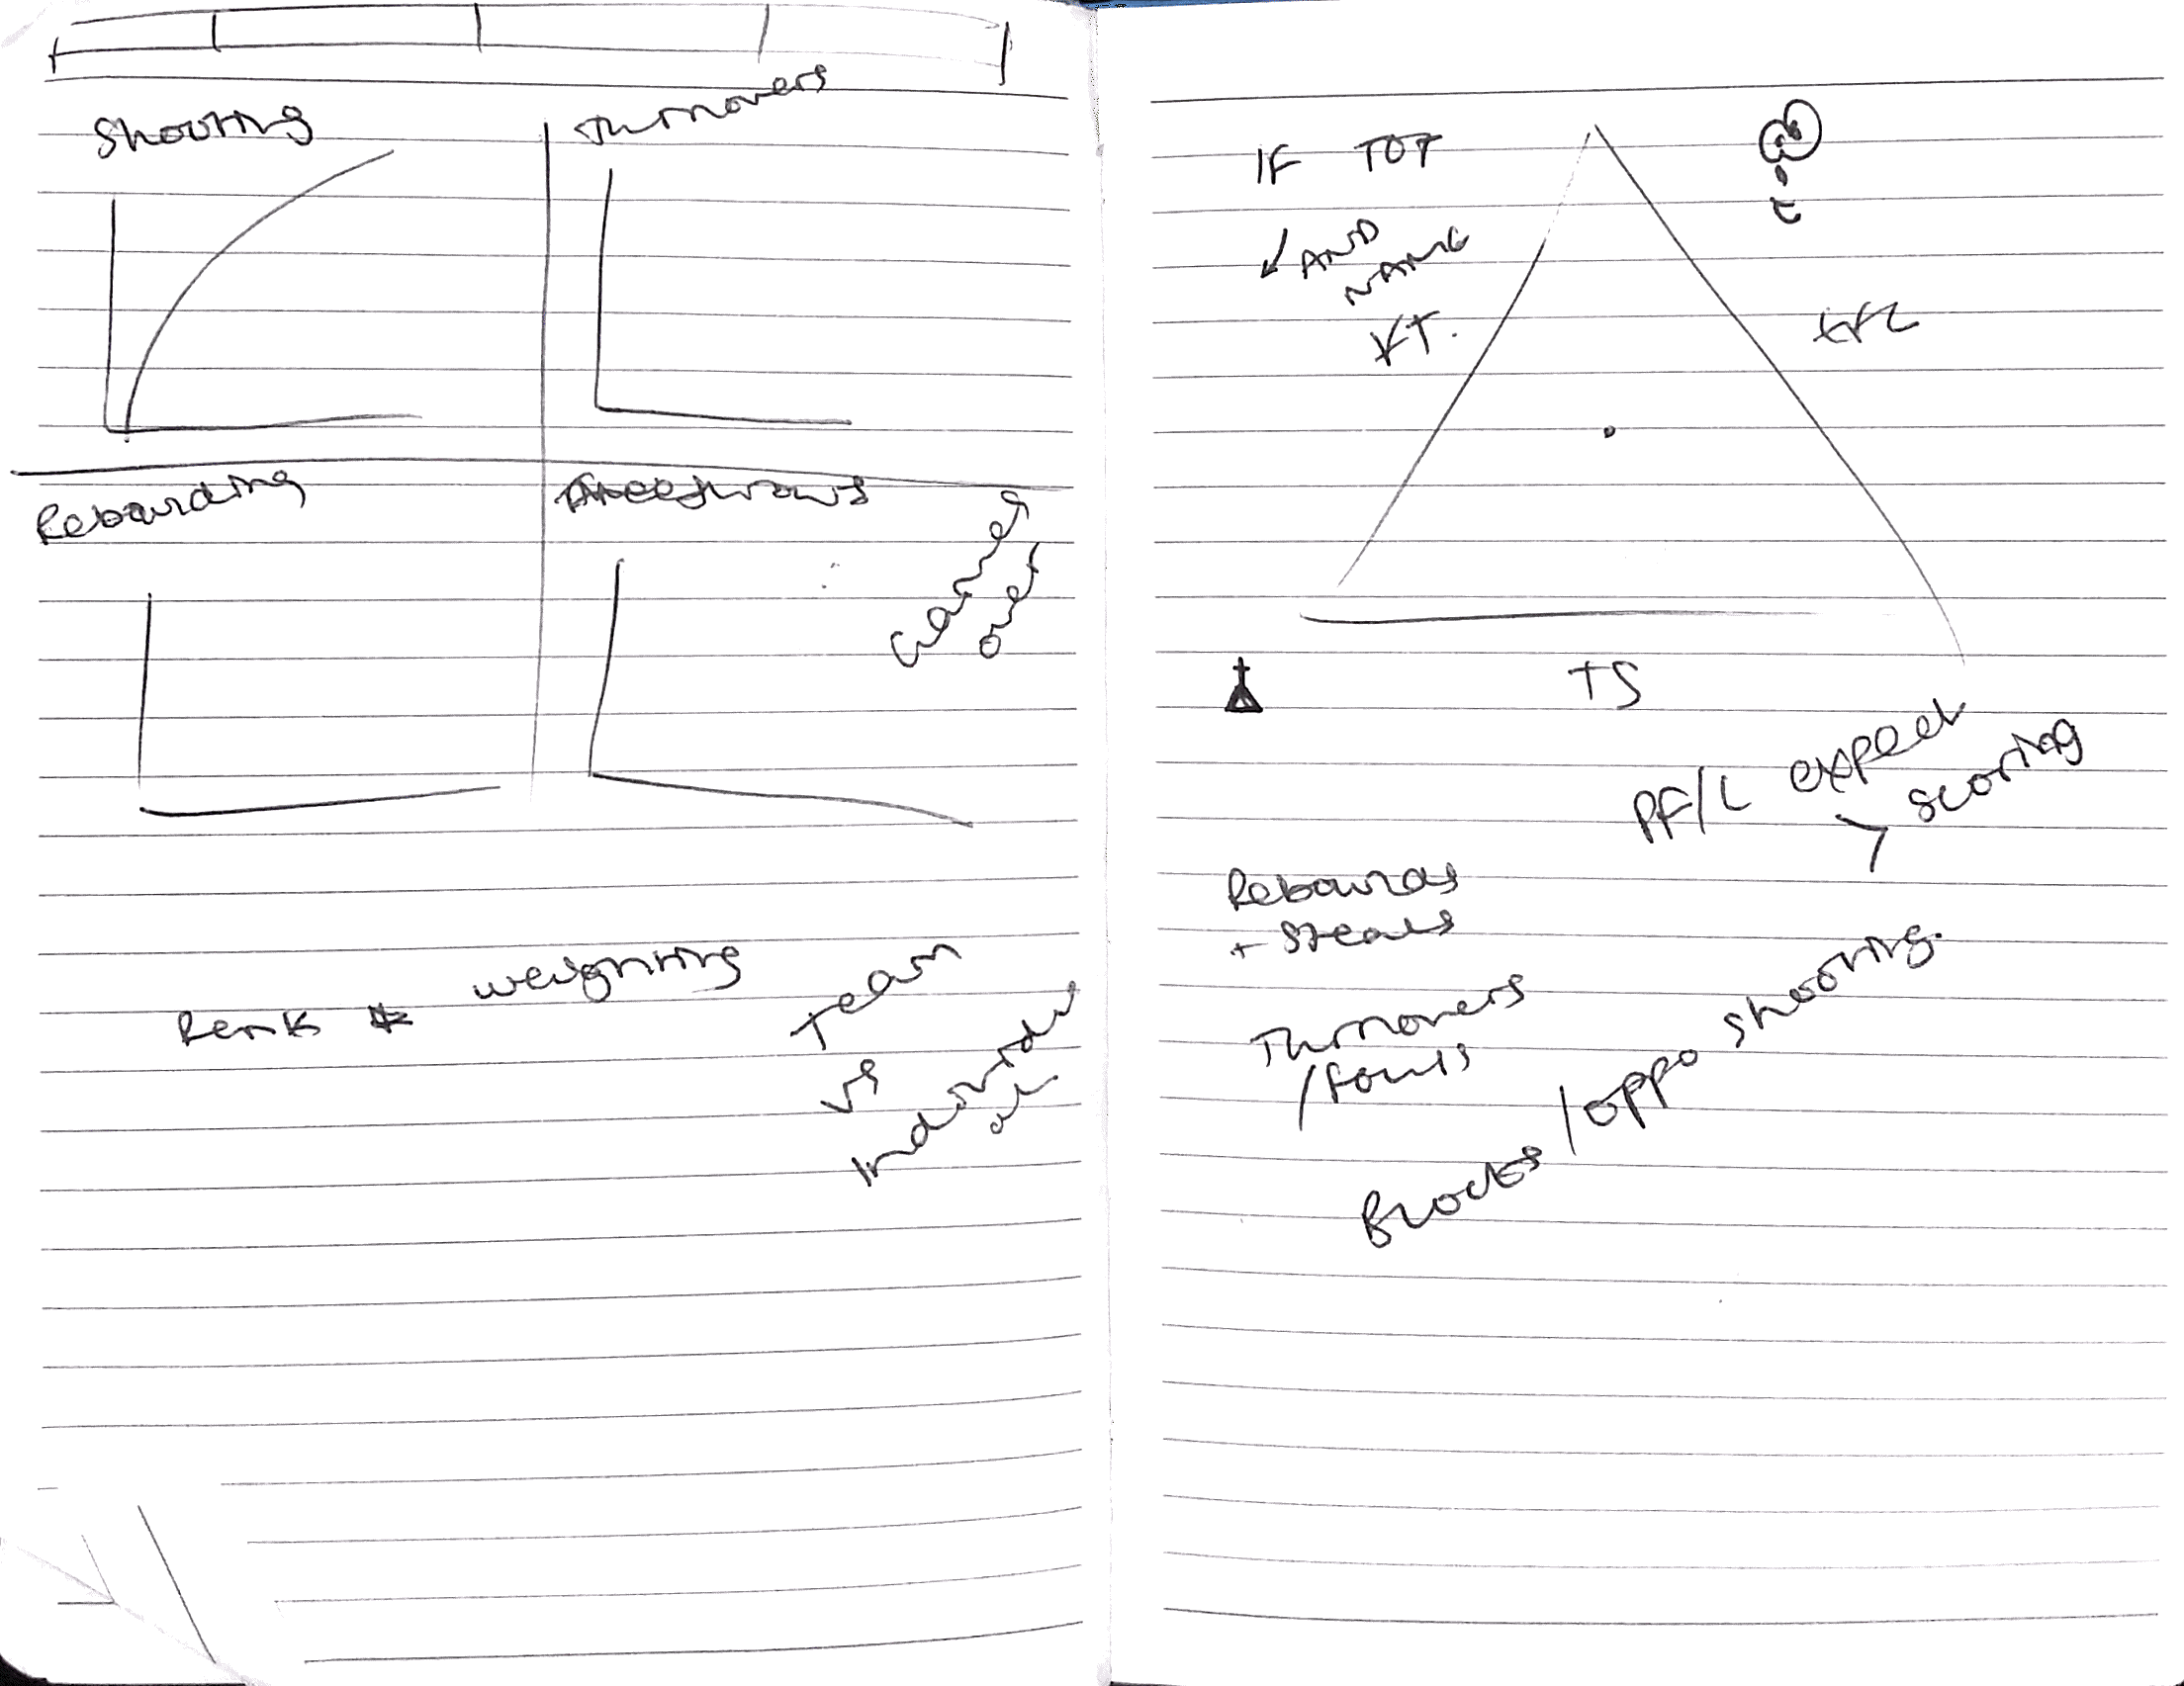 Shooting
Turnovers
Rebounding
Freethrows
over
Rank *
weighting
Team
vs
Individu
al
IF TOT
↙ AND
NAME
TS
PF/L expect
> scoring
Rebounds
+ Steals
Turnovers
/fouls
Blocks / oppo shooting.